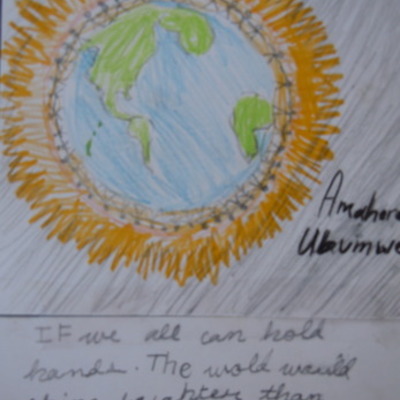 Amahoro
Ubumwe
IF we all can hold
hands. The wold would
shine brighter than